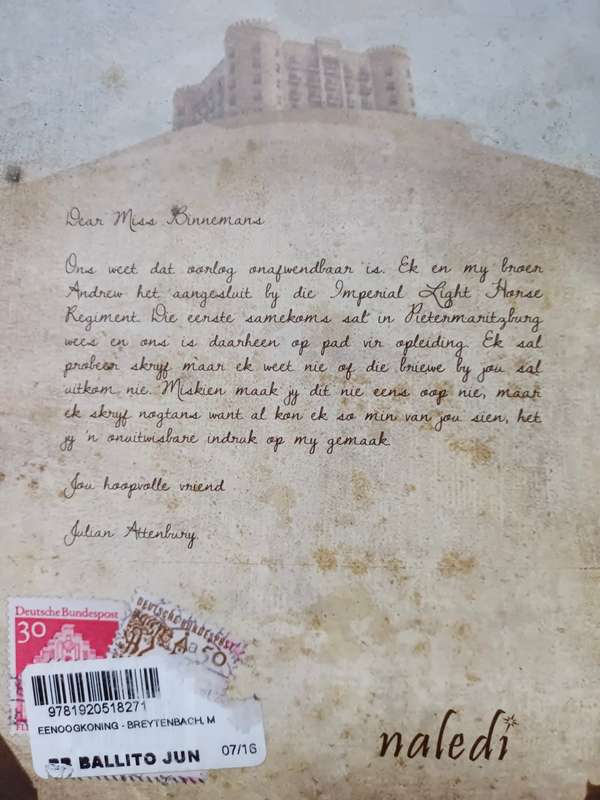 Dear Miss Binnemans
Ons weet dat oorlog onafwendbaar is. Ek en my broer
Andrew het aangesluit by die Imperial Light Horse
Regiment. Die eerste samekoms sal in Pietermaritzburg
wees en ons is daarheen op pad vir opleiding. Ek sal
probeer skryf maar ek weet nie of die briewe by jou sal
uitkom nie. Miskien maak jy dit nie eens oop nie, maar
ek skryf nogtans want al kon ek so min van jou sien, het
jy 'n onuitwisbare indruk op my gemaak.
Jou hoopvolle vriend
Julian Attenbury
Deutsche Bundespost
30
DEUTSCHE BUNDESPOST
50
9781920518271
EENOOGKONING - BREYTENBACH, M
BALLITO JUN
07/16
naledi